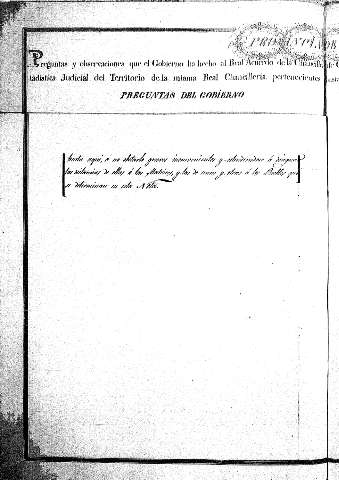 PROVINCIA
Preguntas y observaciones que el Gobierno ha hecho al Real Acuerdo de la Chancill. de
tadistica Judicial del Territorio de la misma Real Chancilleria, pertenecientes
PREGUNTAS DEL GOBIERNO
hasta aqui, o se obstarle graves inconvenientes y el dirigir
las distancias de ellos á las Matrices, y las de unos y otros á los Pueblos que
se determinan en esta Nota.